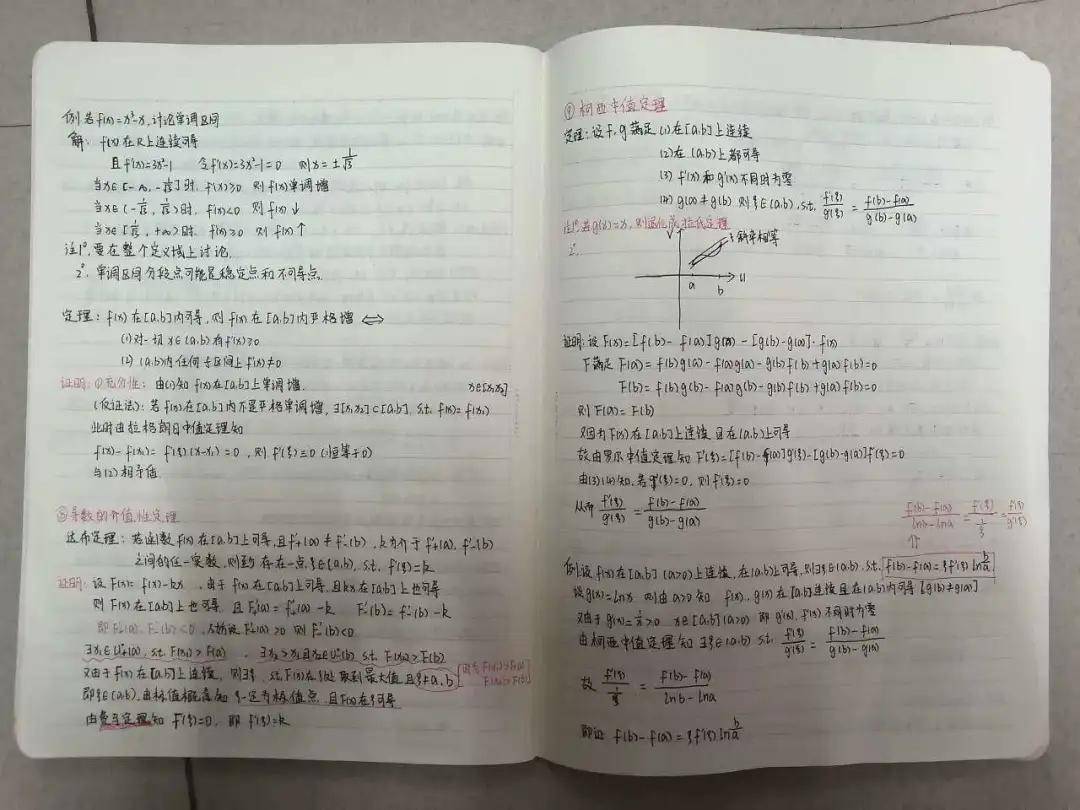 例 若f(x)=x³-x,讨论单调区间
解: f(x)在R上连续可导
且f'(x)=3x²-1 令f'(x)=3x²-1=0 则x=±1/√3
当x∈[-∞,-1/√3]时, f'(x)≥0 则f(x)单调增
当x∈(-1/√3,1/√3)时, f'(x)<0 则f(x)↓
当x∈[1/√3,+∞)时, f'(x)≥0 则f(x)↑
注1°.要在整个定义域上讨论.
2°.单调区间分段点可能是稳定点和不可导点.
定理: f(x)在[a,b]内可导,则f(x)在[a,b]内严格增 ⟺
(1)对一切x∈(a,b)有f'(x)≥0
(2) (a,b)内任何子区间上f'(x)≠0
证明: ①充分性: 由(1)知f(x)在[a,b]上单调增. x∈[x₁,x₂]
(反证法): 若f(x)在[a,b]内不是严格单调增, ∃[x₁,x₂]⊂[a,b], s.t. f(x₁)=f(x₂)
此时由拉格朗日中值定理知
f(x)-f(x₁)=f'(ξ)(x-x₁)=0, 则f'(ξ)≡0 (恒等于0)
与(2)相矛盾
③导数的介值性定理
达布定理: 若函数f(x)在[a,b]上可导,且f'₊(a)≠f'₋(b), k为介于f'₊(a), f'₋(b)
之间的任一实数,则至少存在一点ξ∈(a,b), s.t. f'(ξ)=k
证明: 设F(x)=f(x)-kx, 由于f(x)在[a,b]上可导,且kx在[a,b]上也可导
则F(x)在[a,b]上也可导 且F'₊(a)=f'₊(a)-k F'₋(b)=f'₋(b)-k
即F'₊(a)·F'₋(b)<0,不妨设F'₊(a)>0 则F'₋(b)<0
∃x₁∈U₊(a), s.t. F(x₁)>F(a) , ∃x₂>x₁且x₂∈U₋(b), s.t. F(x₂)>F(b)
又由于F(x)在[a,b]上连续, 则∃ξ, s.t. F(x)在ξ处取到最大值且ξ≠a,b [因为F(x₁)>F(a)
F(x₂)>F(b)]
即ξ∈(a,b),由极值概念知ξ一定为极值点,且F(x)在ξ可导
由费马定理知F'(ξ)=0, 即f'(ξ)=k
④柯西中值定理
定理: 设f,g满足 (1)在[a,b]上连续
(2)在(a,b)上都可导
(3) f'(x)和g'(x)不同时为零
(4) g(a)≠g(b) 则ξ∈(a,b), s.t. f'(ξ)/g'(ξ)=(f(b)-f(a))/(g(b)-g(a))
注1°.若g(x)=x,则退化成拉氏定理
2°.
v
斜率相等
a b u
证明: 设F(x)=[f(b)-f(a)]g(x)-[g(b)-g(a)]·f(x)
F满足F(a)=f(b)g(a)-f(a)g(a)-g(b)f(b)+g(a)f(b)=0
F(b)=f(b)g(b)-f(a)g(b)-g(b)f(b)+g(a)f(b)=0
则F(a)=F(b)
又因为F(x)在[a,b]上连续 且在(a,b)上可导
故由罗尔中值定理知F'(ξ)=[f(b)-f(a)]g'(ξ)-[g(b)-g(a)]f'(ξ)=0
由(3)(4)知,若g'(ξ)=0,则f'(ξ)=0
从而 f'(ξ)/g'(ξ)=(f(b)-f(a))/(g(b)-g(a))
(f(b)-f(a))/(lnb-lna)=f'(ξ)/(1/ξ)=f'(ξ)/g'(ξ)
⇑
例:设f(x)在[a,b](a>0)上连续,在(a,b)上可导,则∃ξ∈(a,b), s.t. f(b)-f(a)=ξf'(ξ)ln b/a
设g(x)=lnx 则由a>0知 f(x), g(x)在[a,b]上连续且在(a,b)内可导 [g(b)≠g(a)]
又由于g'(x)=1/x>0 x∈[a,b](a>0) 即g'(x), f'(x)不同时为零
由柯西中值定理知∃ξ∈(a,b) s.t. f'(ξ)/g'(ξ)=(f(b)-f(a))/(g(b)-g(a))
故 f'(ξ)/(1/ξ)=(f(b)-f(a))/(lnb-lna)
即证 f(b)-f(a)=ξf'(ξ)ln b/a